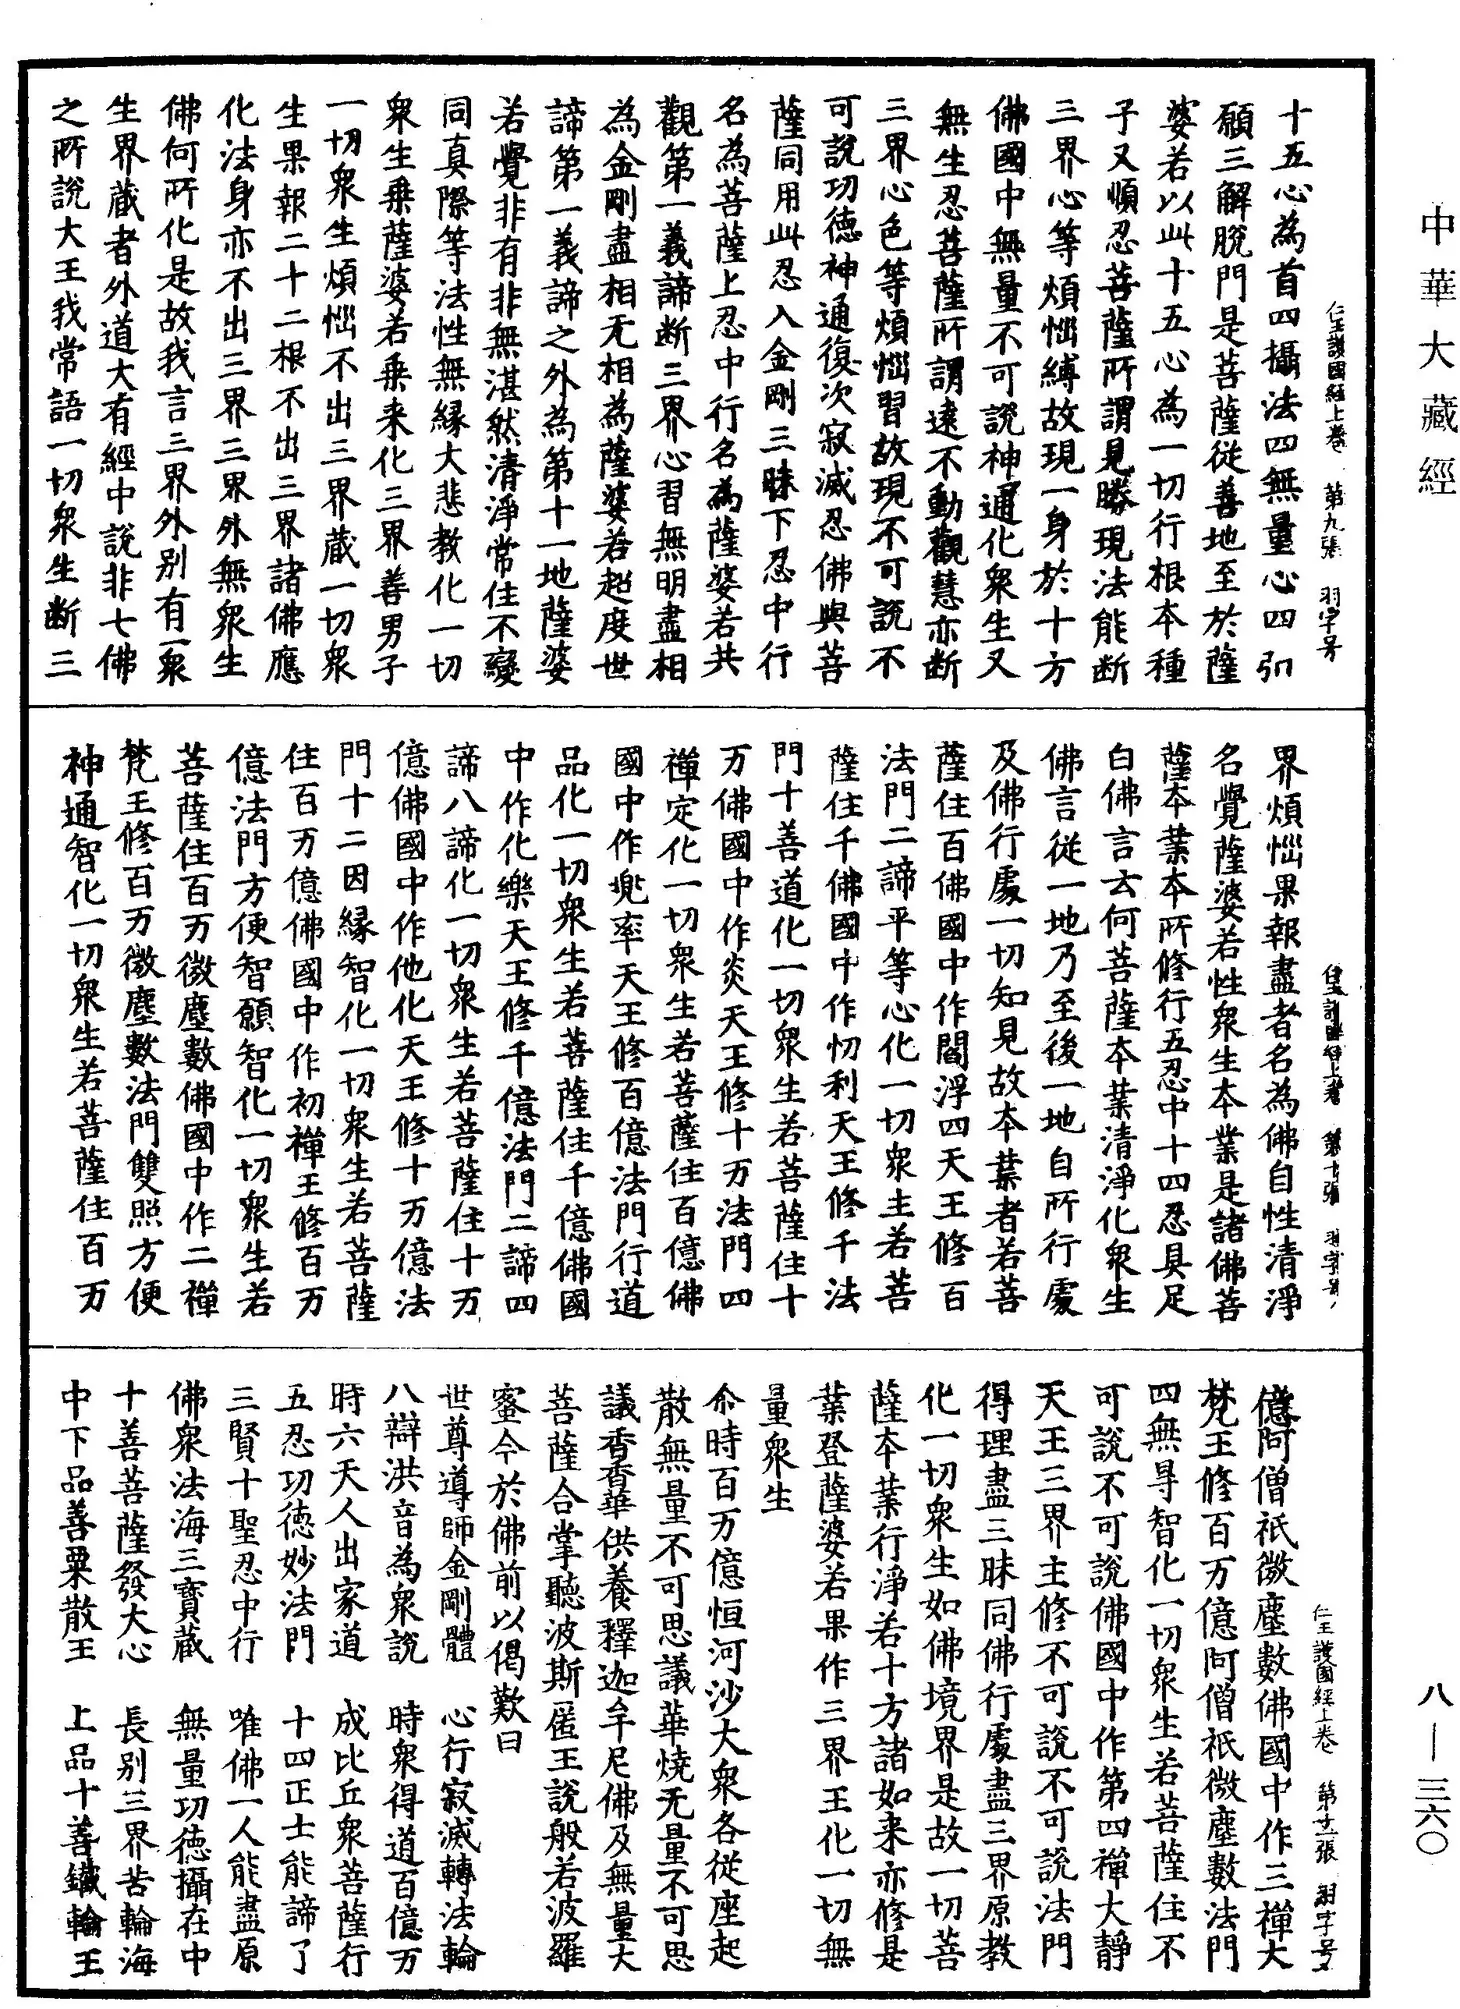 中華大藏經
八—三六〇
仁王護國經上卷 第九張 羽字号
十五心為首四攝法四無量心四弘
願三解脫門是菩薩從善地至於薩
婆若以此十五心為一切行根本種
子又順忍菩薩所謂見勝現法能斷
三界心等煩惱縛故現一身於十方
佛國中無量不可說神通化衆生又
無生忍菩薩所謂遠不動觀慧亦斷
三界心色等煩惱習故現不可說不
可說功德神通復次寂滅忍佛與菩
薩同用此忍入金剛三昧下忍中行
名為菩薩上忍中行名為薩婆若共
觀第一義諦斷三界心習無明盡相
為金剛盡相无相為薩婆若超度世
諦第一義諦之外為第十一地薩婆
若覺非有非無湛然清淨常住不變
同真際等法性無緣大悲教化一切
衆生乘薩婆若乘来化三界善男子
一切衆生煩惱不出三界藏一切衆
生果報二十二根不出三界諸佛應
化法身亦不出三界三界外無衆生
佛何所化是故我言三界外別有一衆
生界藏者外道大有經中說非七佛
之所說大王我常語一切衆生斷三
仁王護國經上卷 第十張 羽字号
界煩惱果報盡者名為佛自性清淨
名覺薩婆若性衆生本業是諸佛菩
薩本業本所修行五忍中十四忍具足
白佛言云何菩薩本業清淨化衆生
佛言從一地乃至後一地自所行處
及佛行處一切知見故本業者若菩
薩住百佛國中作閻浮四天王修百
法門二諦平等心化一切衆生若菩
薩住千佛國中作忉利天王修千法
門十善道化一切衆生若菩薩住十
万佛國中作炎天王修十万法門四
禪定化一切衆生若菩薩住百億佛
國中作兜率天王修百億法門行道
品化一切衆生若菩薩住千億佛國
中作化樂天王修千億法門二諦四
諦八諦化一切衆生若菩薩住十万
億佛國中作他化天王修十万億法
門十二因緣智化一切衆生若菩薩
住百万億佛國中作初禪王修百万
億法門方便智願智化一切衆生若
菩薩住百万微塵數佛國中作二禪
梵王修百万微塵數法門雙照方便
神通智化一切衆生若菩薩住百万
仁王護國經上卷 第十一張 羽字号
億阿僧祇微塵數佛國中作三禪大
梵王修百万億阿僧祇微塵數法門
四無㝵智化一切衆生若菩薩住不
可說不可說佛國中作第四禪大靜
天王三界主修不可說不可說法門
得理盡三昧同佛行處盡三界原教
化一切衆生如佛境界是故一切菩
薩本業行淨若十方諸如来亦修是
業登薩婆若果作三界王化一切無
量衆生
尒時百万億恒河沙大衆各從座起
散無量不可思議華燒无量不可思
議香香華供養釋迦牟尼佛及無量大
菩薩合掌聽波斯匿王說般若波羅
蜜今於佛前以偈歎曰
世尊導師金剛體 心行寂滅轉法輪
八辯洪音為衆說 時衆得道百億万
時六天人出家道 成比丘衆菩薩行
五忍功德妙法門 十四正士能諦了
三賢十聖忍中行 唯佛一人能盡原
佛衆法海三寶藏 無量功德攝在中
十善菩薩發大心 長別三界苦輪海
中下品善粟散王 上品十善鐵輪王